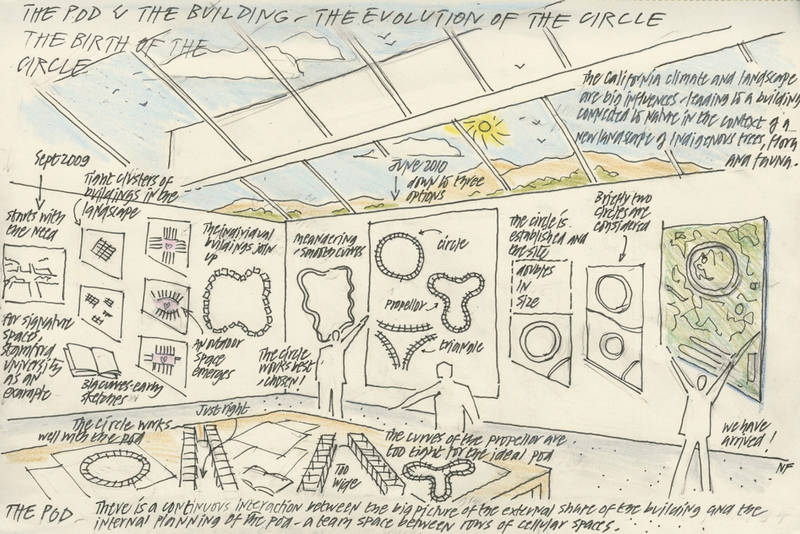 THE POD & THE BUILDING - THE EVOLUTION OF THE CIRCLE
THE BIRTH OF THE
CIRCLE
The California climate and landscape
are big influences - leading to a building
connected to Nature in the context of a
new landscape of Indigenous trees, flora
and fauna.
Sept 2009
starts with
the need
for signature
space,
Stanford
University
as an
example
Tight clusters of
buildings in the
landscape
Big curves - early
sketches
An outdoor
space
emerges
The individual
buildings join
up
meandering
- smooth curves
The circle
works best
- chosen!
June 2010
down to three
options
circle
propellor
triangle
The circle is
established and
the site
doubles
in
size
Briefly two
circles are
considered
we have
arrived!
NF
The circle works
well with the pod
Just right
Too
wide
The curves of the propellor are
too tight for the ideal pod
THE POD - There is a continuous interaction between the big picture of the external share of the building and the
internal planning of the pod - a team space between rows of cellular spaces.